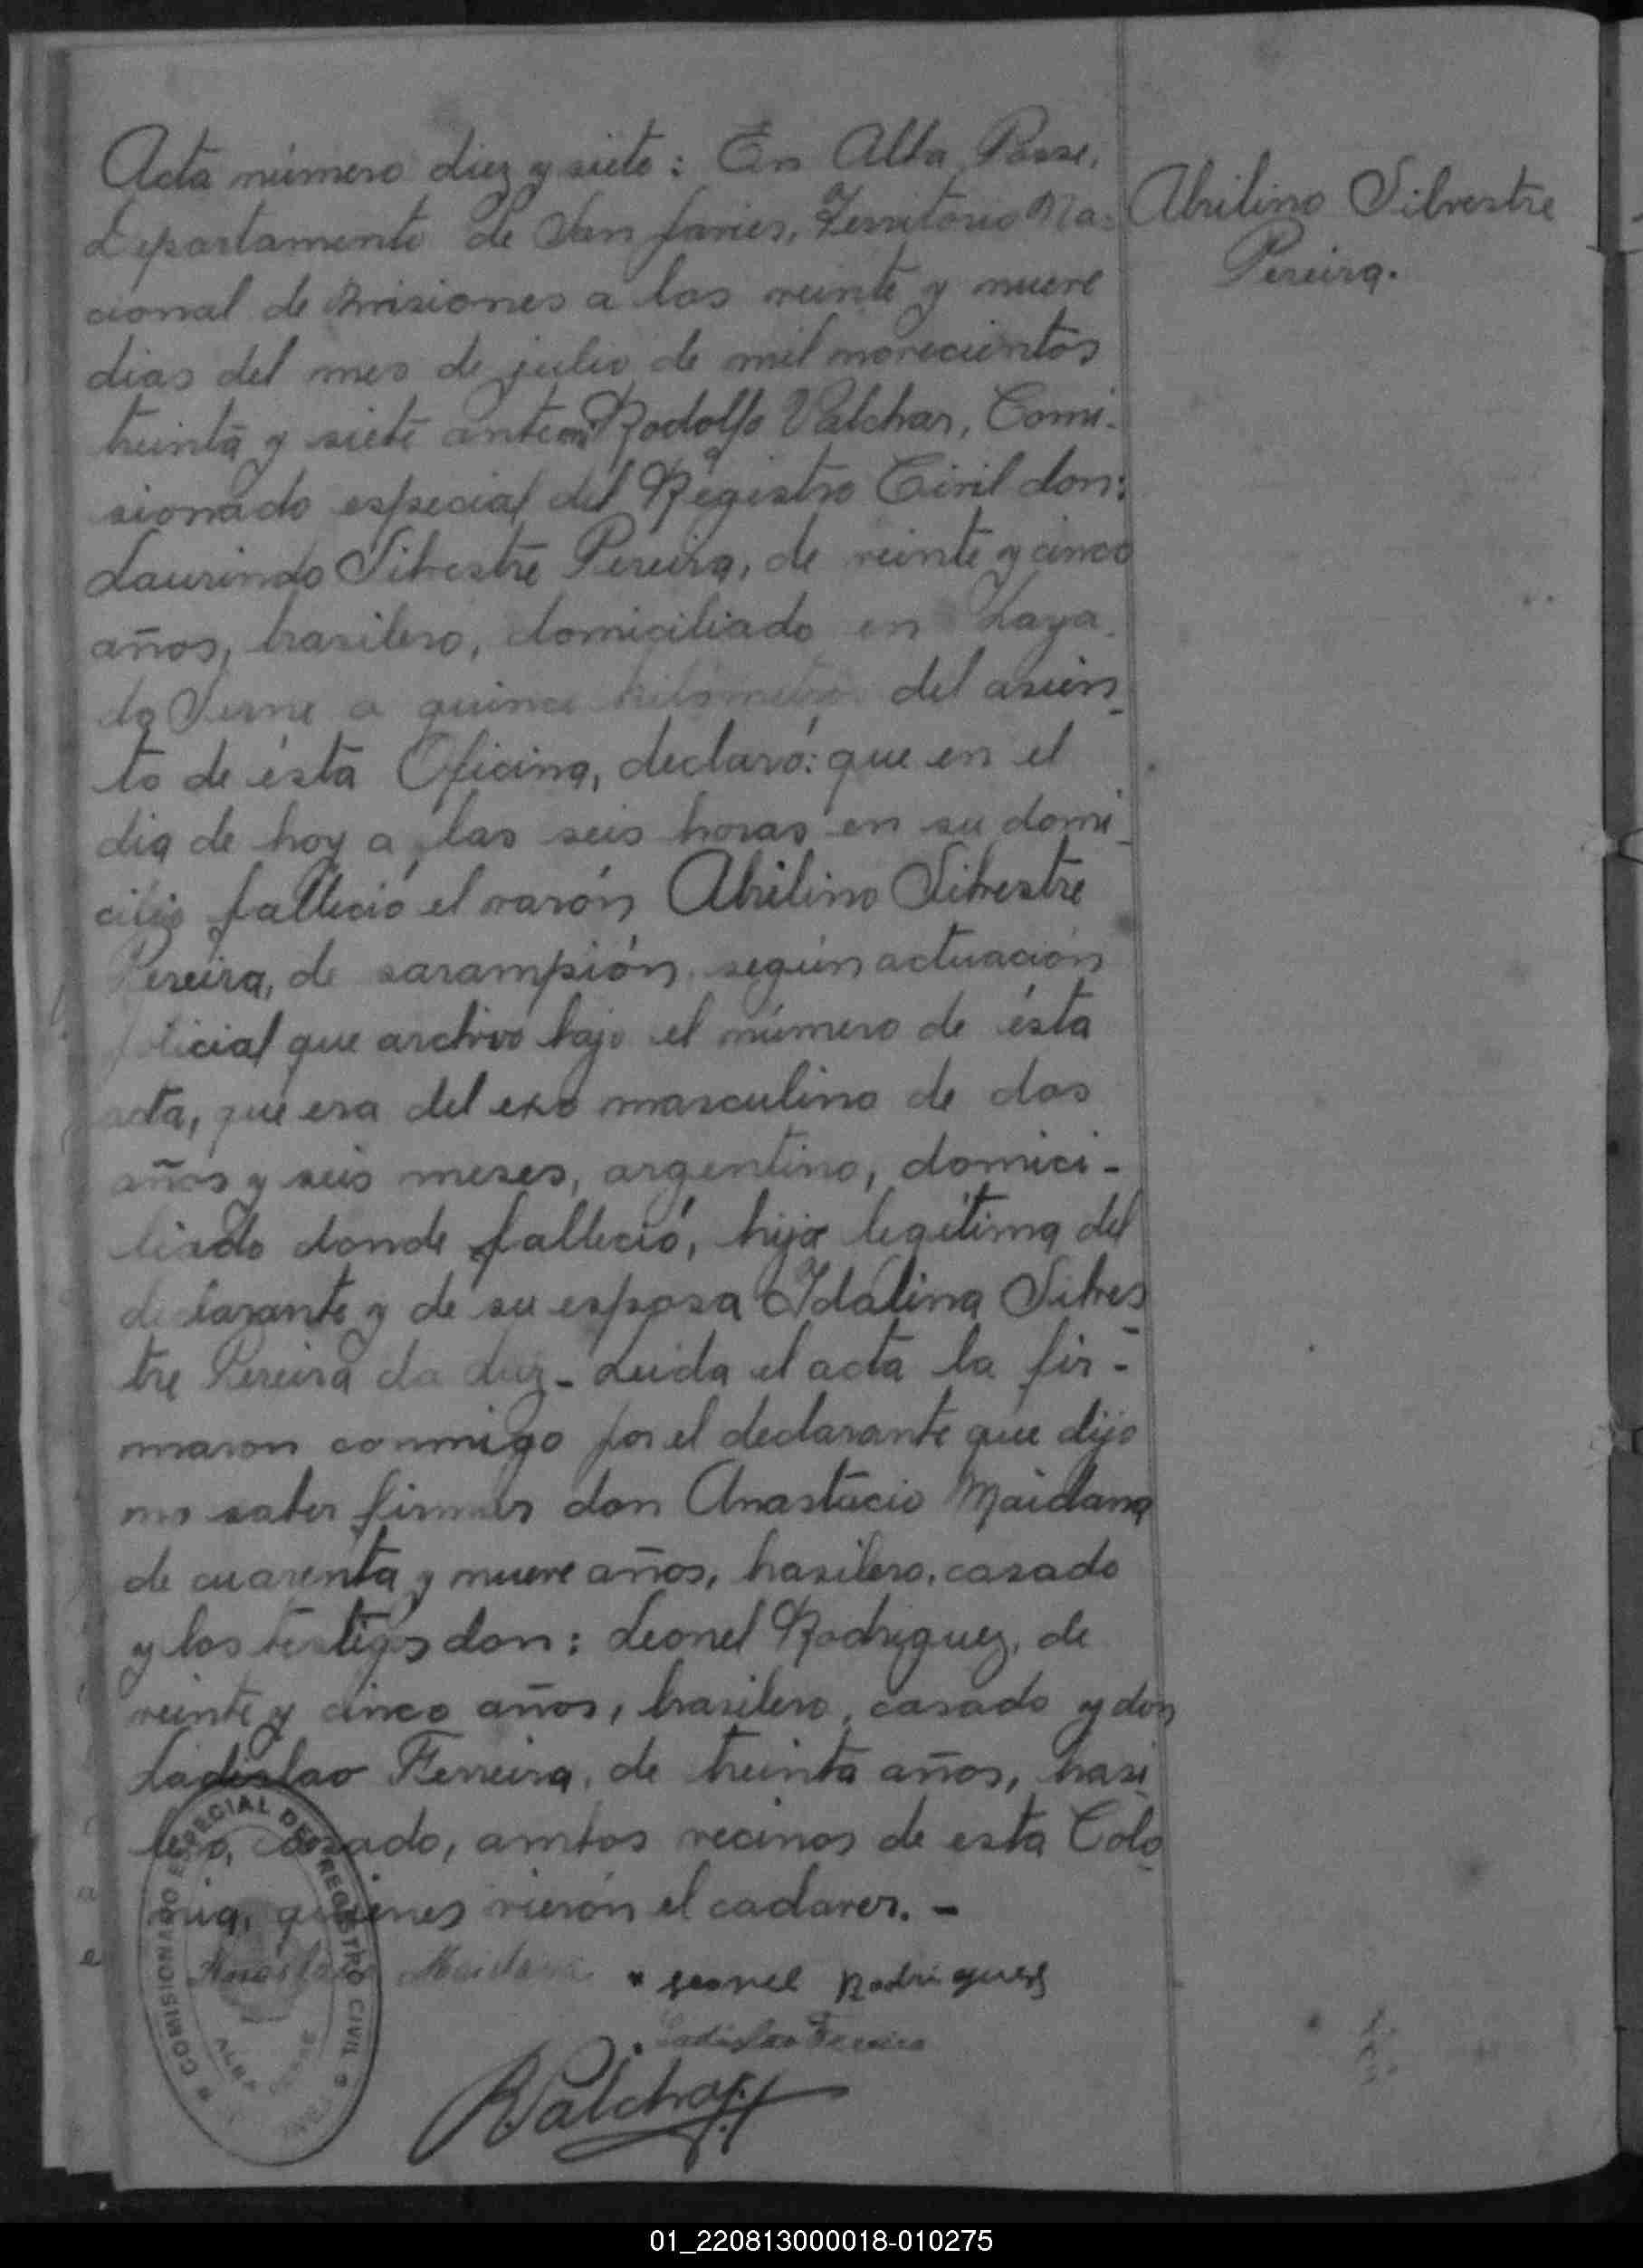 Acta número diez y siete: En Alba Posse,
Departamento de San Javier, Territorio Na-
cional de Misiones a los veinte y nueve
dias del mes de julio de mil novecientos
treinta y siete ante mi Rodolfo Valchar, Comi-
sionado especial del Registro Civil don:
Laurindo Silvestre Pereira, de veinte y cinco
años, brasilero, domiciliado en Laya
do a quince kilometros del asien-
to de ésta Oficina, declaró: que en el
dia de hoy a las seis horas en su domi-
cilio falleció el varón Abrilino Silvestre
Pereira, de sarampión según actuación
policial que archivo bajo el número de ésta
acta, que era del exo masculino de dos
años y seis meses, argentino, domici-
liado donde falleció, hijo legitima del
declarante y de su esposa Idalina Silves
tre Pereira da Luz - Leida el acta la fir-
maron conmigo por el declarante que dijo
no saber firmar don Anastacio Maidana
de cuarenta y nueve años, brasilero, casado
y los testigos don: Leonel Rodriguez, de
veinte y cinco años, brasilero, casado y don
Ladislao Ferreira, de treinta años, brasi
lero, casado, ambos vecinos de esta Colo
nia, quienes vierón el cadaver. -
Abrilino Silvestre
Pereira.
Anastacio Maidana
Leonel Rodriguez
Ladislao Ferreira
RValchar
COMISIONADO ESPECIAL DEL REGISTRO CIVIL
ALBA POSSE
01_220813000018-010275